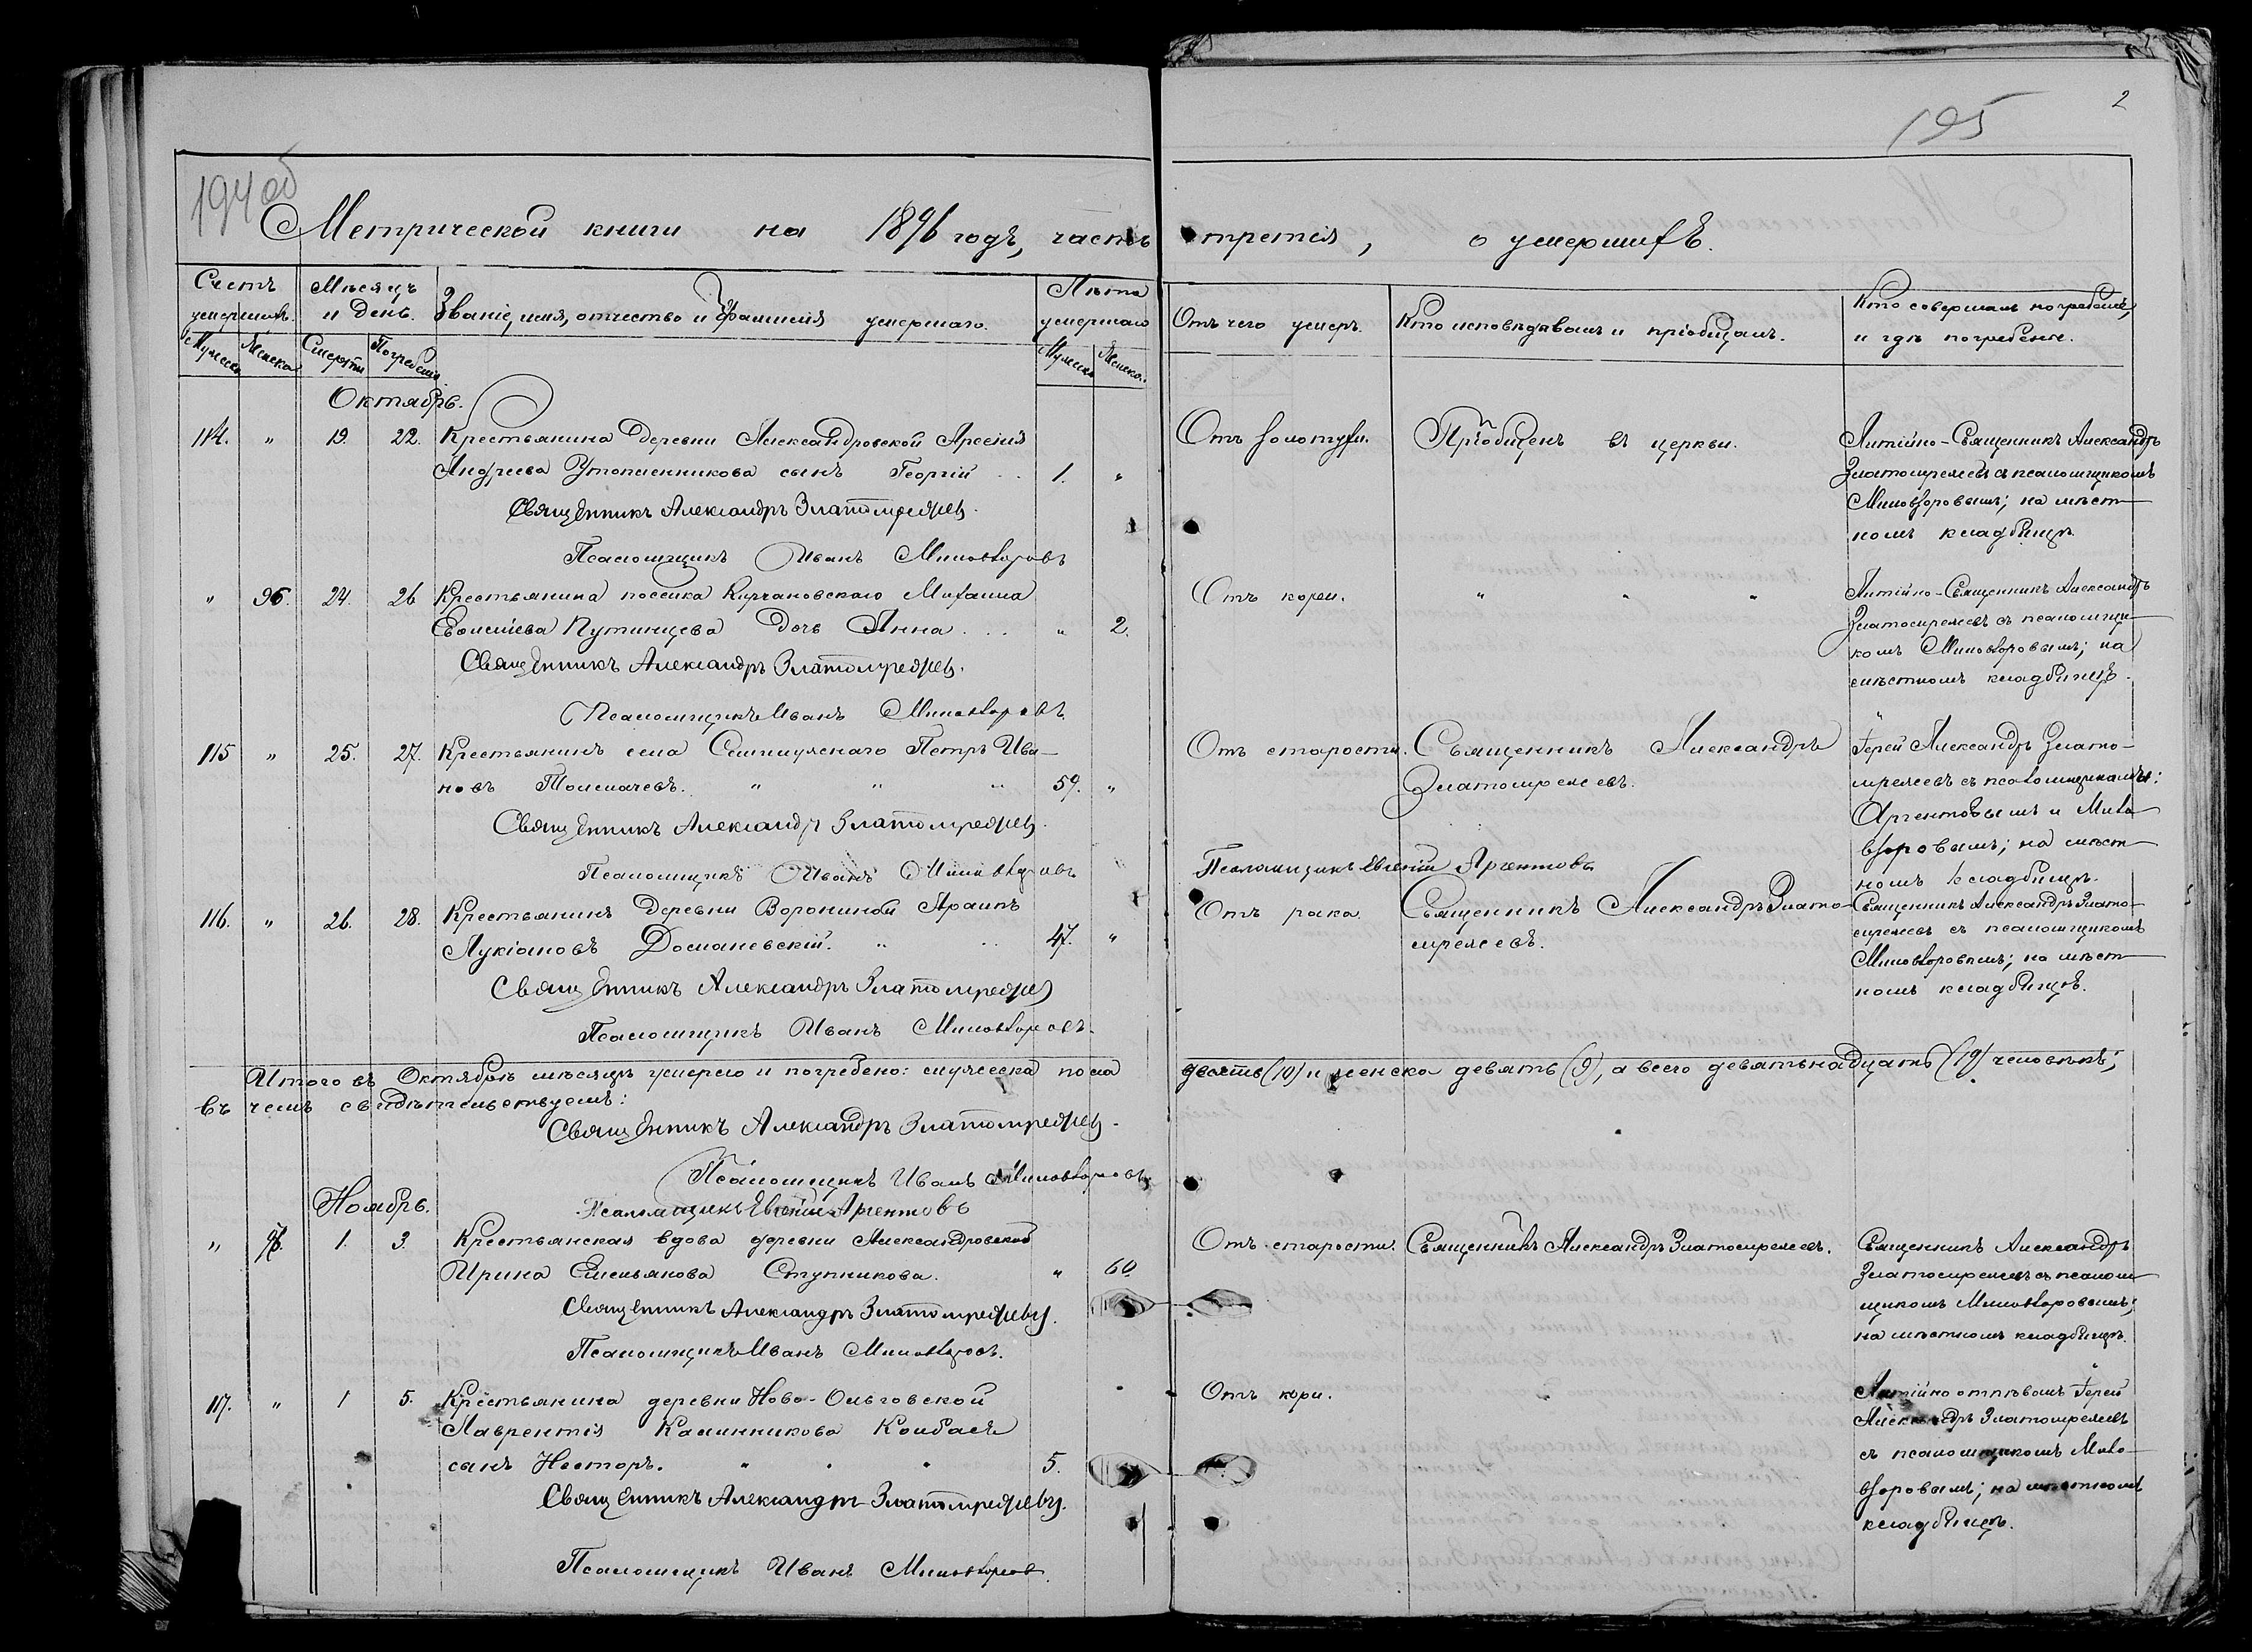 2
195
194 об
Метрической книги на 1896 годъ, часть третія, о умершихъ.
Счетъ умершихъ.
Мѣсяцъ и день.
Званіе, имя, отчество и фамилія умершаго.
Лѣта умершаго
Отъ чего умеръ.
Кто исповѣдывалъ и пріобщалъ.
Кто совершалъ погребеніе,
и гдѣ погребены.
Мужеска
Женска
Смерти
Погребенія
Мужеска
Женска.
Октябрь.
114. " 19. 22. Крестьянина деревни Александровской Арсенія
Андреева Утопленникова сынъ Георгій 1. "
Священникъ Александръ Златомрежевъ.
Псаломщикъ Иванъ Миловзоровъ
Отъ золотухи.
Пріобщенъ въ церкви.
Литійно-Священникъ Александръ
Златомрежевъ съ псаломщикомъ
Миловзоровымъ; на мѣст-
номъ кладбищѣ.
" 96. 24. 26 Крестьянина поселка Курчановскаго Михаила
Путинцева дочь Анна . . . " 2.
Священникъ Александръ Златомрежевъ.
Псаломщикъ Иванъ Миловзоровъ.
Отъ кори.
" " "
Литійно-Священникъ Александръ
Златомрежевъ съ псаломщи-
комъ Миловзоровымъ; на
мѣстномъ кладбищѣ.
115 " 25. 27. Крестьянинъ села Петръ Ива-
новъ Толмачевъ. " " " 59. "
Священникъ Александръ Златомрежевъ.
Псаломщикъ Иванъ Миловзоровъ
Отъ старости.
Священникъ Александръ
Златомрежевъ.
Псаломщикъ Евгеній Аргентовъ
Іерей Александръ Злато-
мрежевъ съ псаломщиками:
Аргентовымъ и Мило-
взоровымъ; на мѣст-
номъ кладбищѣ.
116. " 26. 28. Крестьянинъ деревни Ворониной
Лукіановъ Домановскій. " " 47. "
Священникъ Александръ Златомрежевъ
Псаломщикъ Иванъ Миловзоровъ.
Отъ рака
Священникъ Александръ Злато-
мрежевъ.
Священникъ Александръ Злато-
мрежевъ съ псаломщикомъ
Миловзоровымъ; на мѣст-
номъ кладбищѣ.
Итого въ Октябрѣ мѣсяцѣ умерло и погребено: мужеска пола десять (10) и женска девять (9), а всего девятьнадцать (19) человѣкъ;
въ чемъ свидѣтельствуемъ:
Священникъ Александръ Златомрежевъ.
Псаломщикъ Иванъ Миловзоровъ.
Псаломщикъ Евгеній Аргентовъ
Ноябрь.
" 1. 3. Крестьянская вдова деревни Александровской
Ирина Емельянова Ступникова. " 60.
Священникъ Александръ Златомрежевъ.
Псаломщикъ Иванъ Миловзоровъ.
Отъ старости.
Священникъ Александръ Златомрежевъ.
Священникъ Александръ
Златомрежевъ съ псалом-
щикомъ Миловзоровымъ;
на мѣстномъ кладбищѣ.
117. " 1 5. Крестьянина деревни Ново-Ольговской
Лаврентія Калинникова Колбаса
сынъ Несторъ. " " " 5.
Священникъ Александръ Златомрежевъ.
Псаломщикъ Иванъ Миловзоровъ.
Отъ кори.
Литійно отпѣвалъ Іерей
Александръ Златомрежевъ
съ псаломщикомъ Мило-
взоровымъ; на мѣстномъ
кладбищѣ.